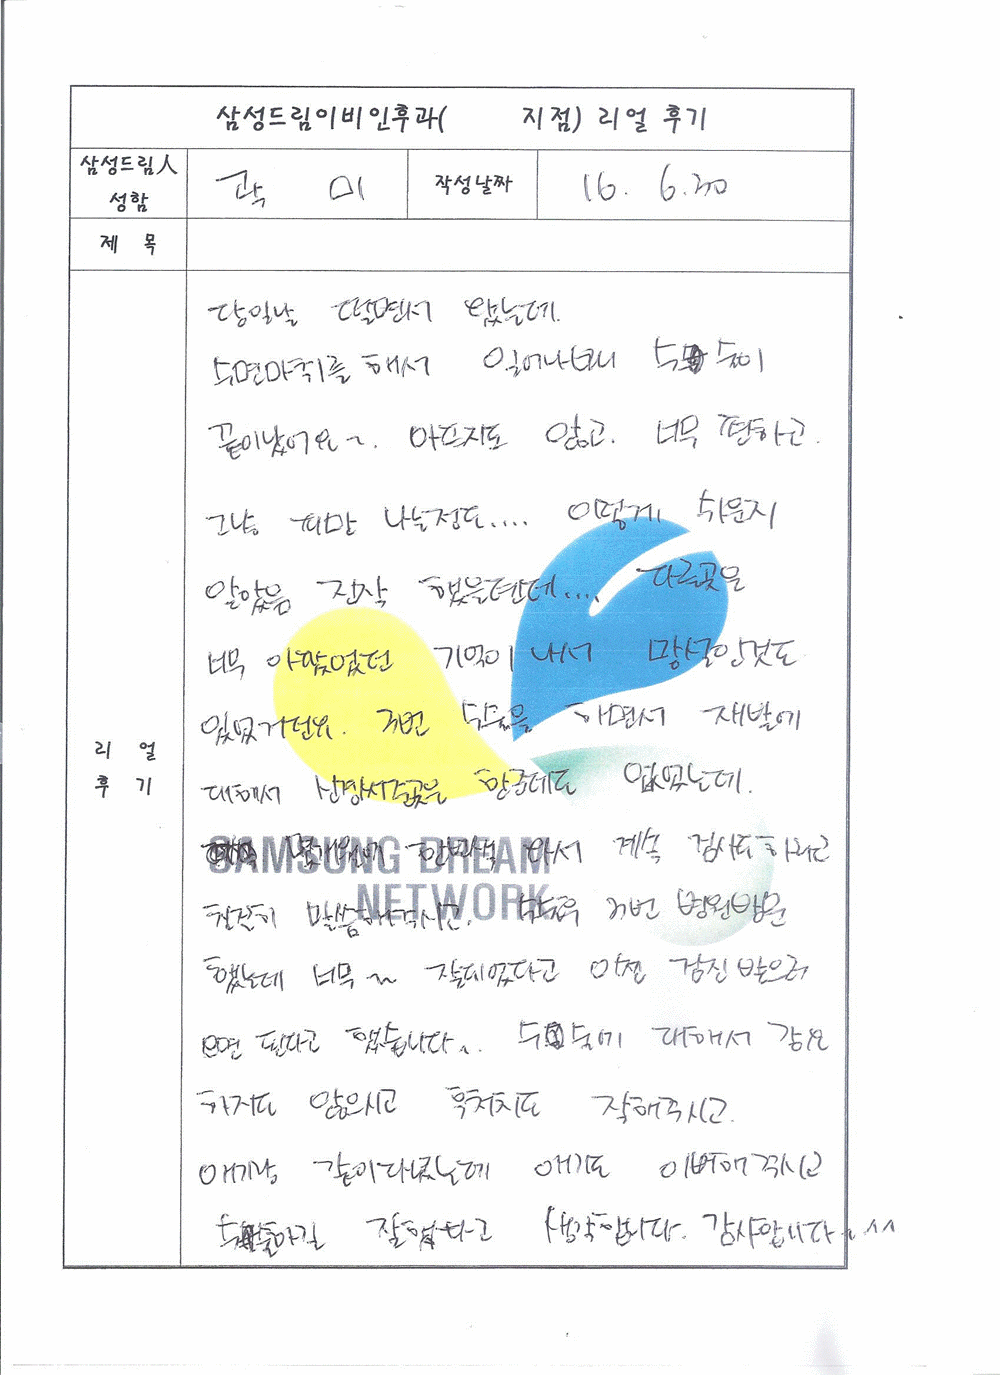 삼성드림이비인후과(        지점) 리얼 후기
삼성드림人 성함
곽   미
작성날짜
16. 6. 30
제 목
리 얼
후 기
당일날 떨면서 왔는데.
수면마취를 해서 일어나보니 수술이
끝이났어요~. 아프지도 않고. 너무 편하고.
그냥 피만 나는정도.... 이렇게 쉬운지
알았음 진작 했을텐데.... 다른곳은
너무 아팠었던 기억이 나서 망설인것도
있었거던요. 저번 수술을 하면서 재발에
대해서 설명서같은 한군데도 없었는데.
몇개월에 한번씩 와서 계속 검사도 하라고
친절히 말씀해주시고. 저번 병원방문
했는데 너무~ 잘되었다고 이젠 검진 받으러
오면 된다고 했습니다~. 수술에 대해서 강요
하지도 않으시고 후처치도 잘해주시고.
애기랑 같이다녔는데 애기도 이뻐해 주시고
수술하길 잘했다고 생각합니다. 감사합니다~ ^^
SAMSUNG DREAM
NETWORK